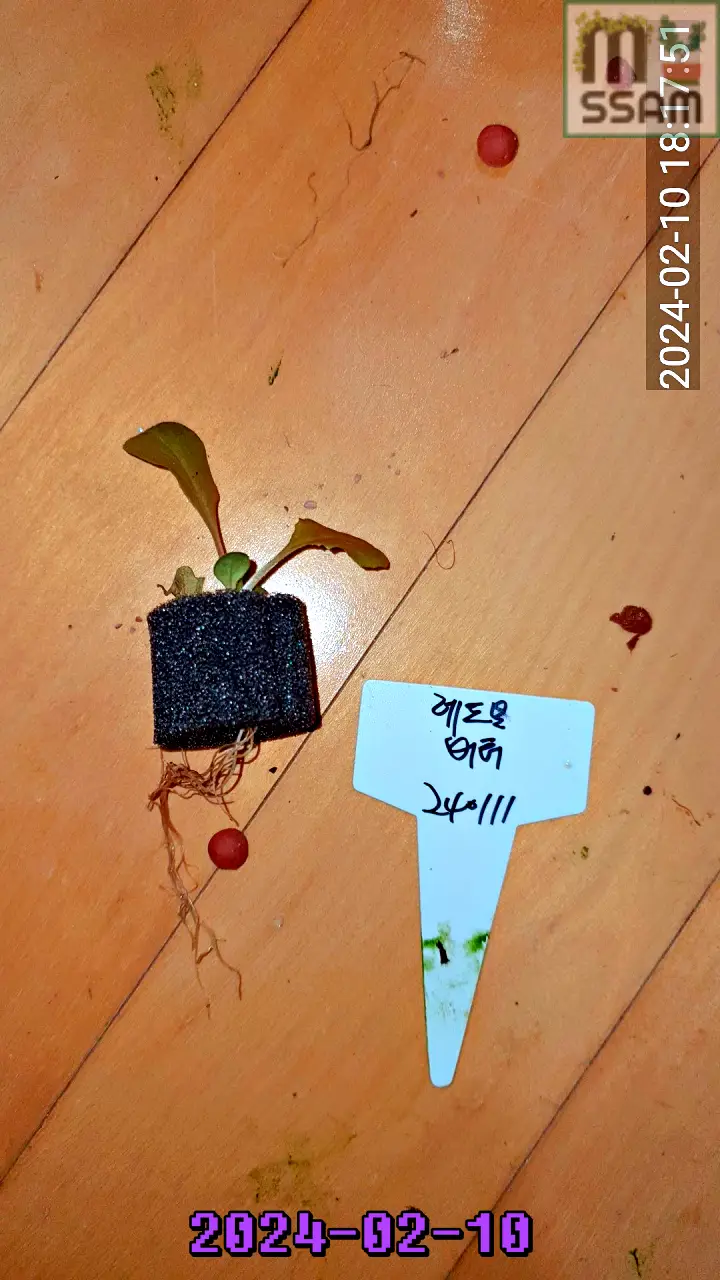 M
SSAM
2024-02-10 18:17:51
레드로
버터
240111
2024-02-10